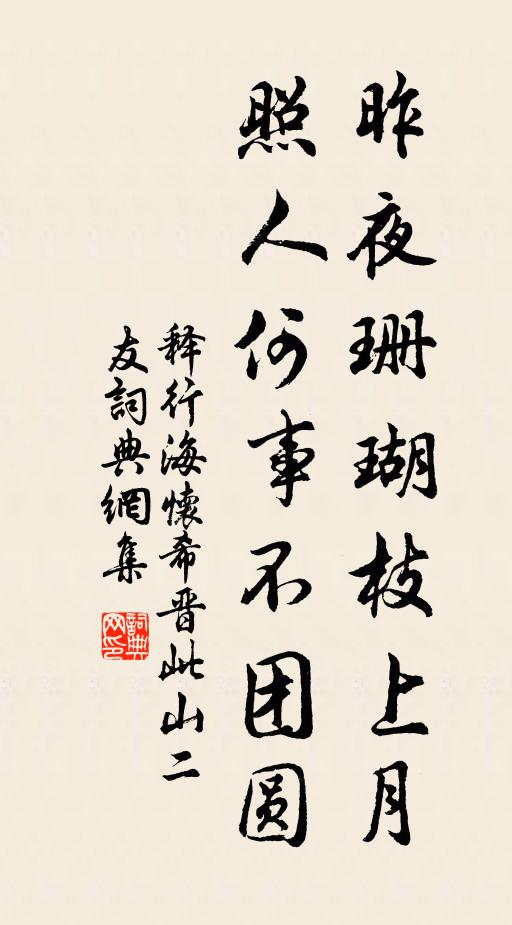 昨夜珊瑚枝上月
照人何事不团圆
释行海懷希晋此山二
友詞典網集
詞典网印